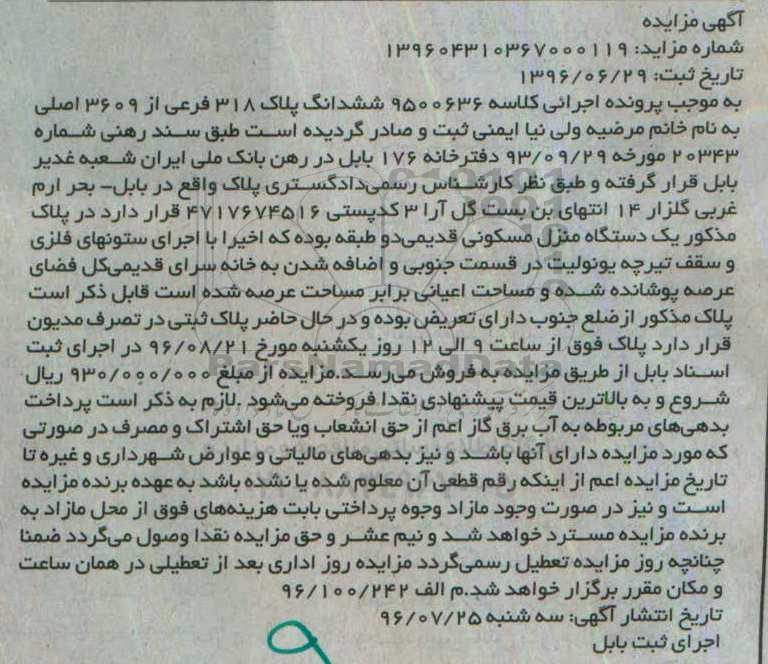 آگهی مزایده
شماره مزاید: ۱۳۹۶۰۴۳۱۰۳۶۷۰۰۰۱۱۹
تاریخ ثبت: ۱۳۹۶/۰۶/۲۹
به موجب پرونده اجرائی کلاسه ۹۵۰۰۶۳۶ ششدانگ پلاک ۳۱۸ فرعی از ۳۶۰۹ اصلی
به نام خانم مرضیه ولی نیا ایمنی ثبت و صادر گردیده است طبق سند رهنی شماره
۲۰۳۴۳ مورخه ۹۳/۰۹/۲۹ دفترخانه ۱۷۶ بابل در رهن بانک ملی ایران شعبه غدیر
بابل قرار گرفته و طبق نظر کارشناس رسمی‌دادگستری پلاک واقع در بابل- بحر ارم
غربی گلزار ۱۴ انتهای بن بست گل آرا ۳ کدپستی ۴۷۱۷۶۷۴۵۱۶ قرار دارد در پلاک
مذکور یک دستگاه منزل مسکونی قدیمی‌دو طبقه بوده که اخیرا با اجرای ستونهای فلزی
و سقف تیرچه یونولیت در قسمت جنوبی و اضافه شدن به خانه سرای قدیمی‌کل فضای
عرصه پوشانده شده و مساحت اعیانی برابر مساحت عرصه شده است قابل ذکر است
پلاک مذکور ازضلع جنوب دارای تعریض بوده و در حال حاضر پلاک ثبتی در تصرف مدیون
قرار دارد پلاک فوق از ساعت ۹ الی ۱۲ روز یکشنبه مورخ ۹۶/۰۸/۲۱ در اجرای ثبت
اسناد بابل از طریق مزایده به فروش می‌رسد.مزایده از مبلغ ۹۳۰/۰۰۰/۰۰۰ ریال
شروع و به بالاترین قیمت پیشنهادی نقدا فروخته می‌شود .لازم به ذکر است پرداخت
بدهی‌های مربوطه به آب برق گاز اعم از حق انشعاب ویا حق اشتراک و مصرف در صورتی
که مورد مزایده دارای آنها باشد و نیز بدهی‌های مالیاتی و عوارض شهرداری و غیره تا
تاریخ مزایده اعم از اینکه رقم قطعی آن معلوم شده یا نشده باشد به عهده برنده مزایده
است و نیز در صورت وجود مازاد وجوه پرداختی بابت هزینه‌های فوق از محل مازاد به
برنده مزایده مسترد خواهد شد و نیم عشر و حق مزایده نقدا وصول می‌گردد ضمنا
چنانچه روز مزایده تعطیل رسمی‌گردد مزایده روز اداری بعد از تعطیلی در همان ساعت
و مکان مقرر برگزار خواهد شد.م الف ۹۶/۱۰۰/۲۴۲
تاریخ انتشار آگهی: سه شنبه ۹۶/۰۷/۲۵
اجرای ثبت بابل